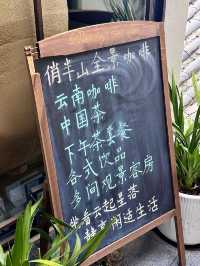 俏半山全景咖啡
云南咖啡
中国茶
下午茶套餐
各式饮品
多间观景客房
看云起星落
闲适生活